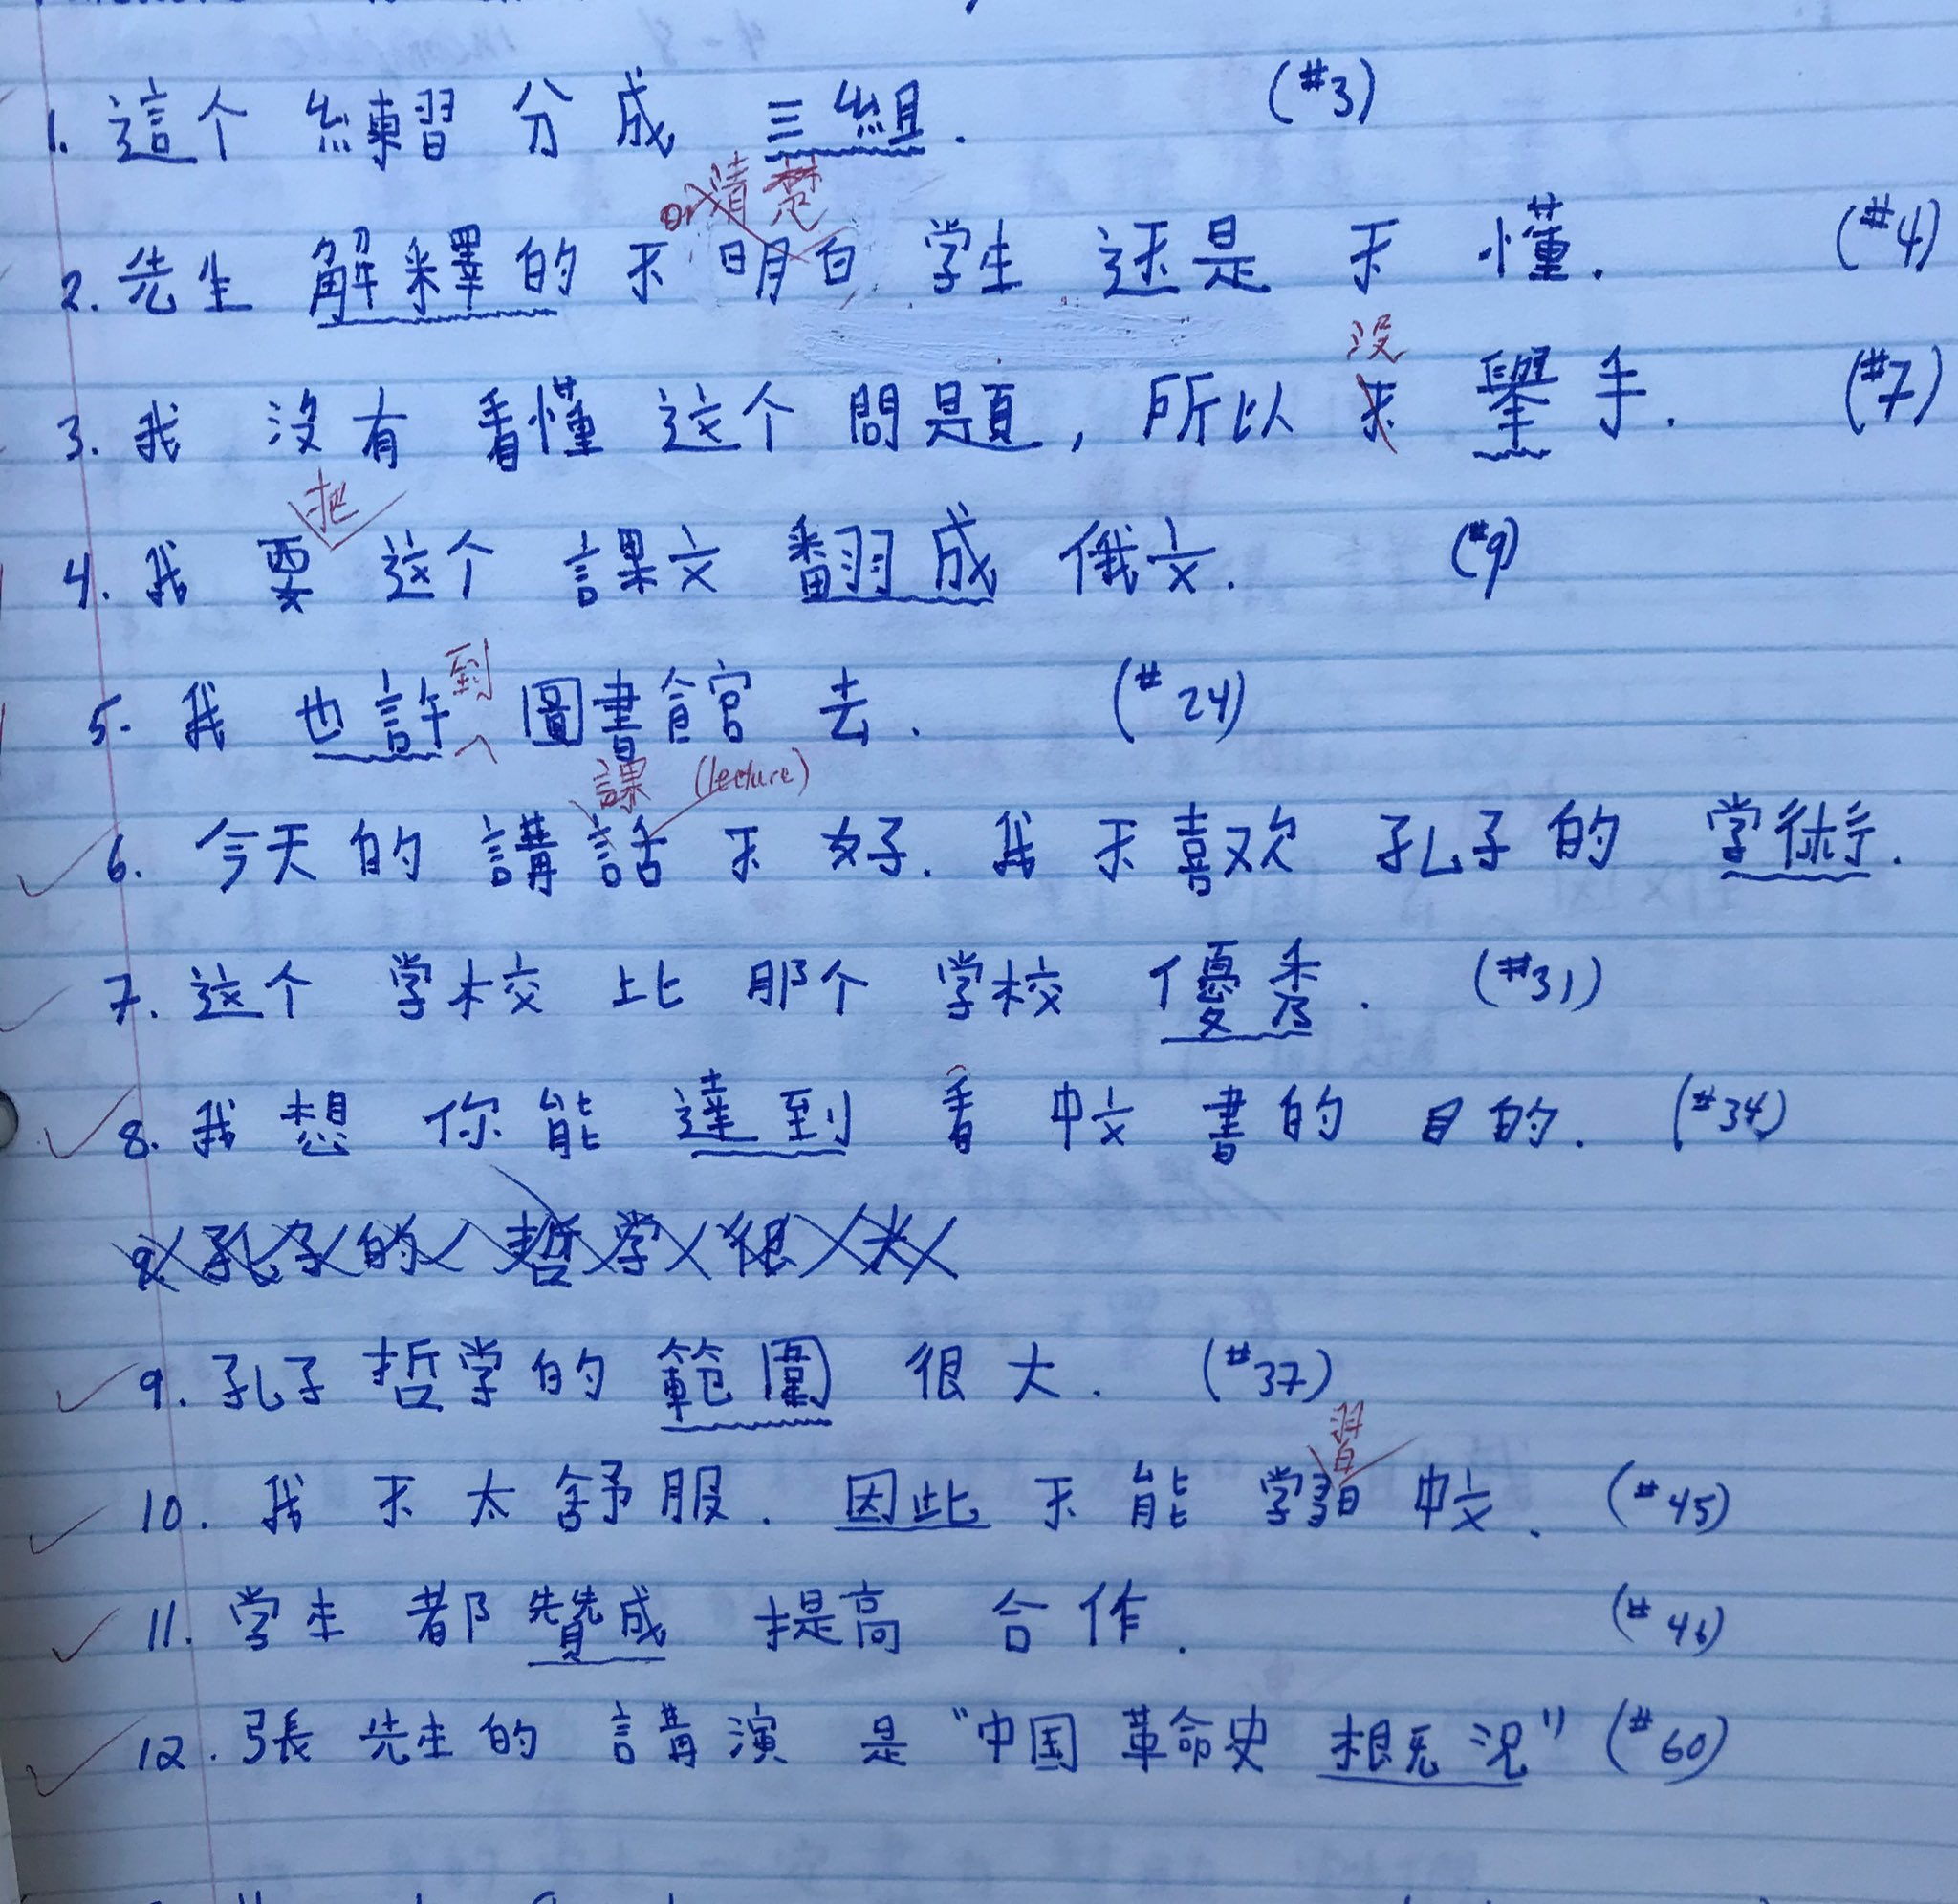 1. 這个 練習 分成 三組. (#3)
or 清楚
2. 先生 解釋的 不 明白 学生 还是 不 懂. (#4)
没
3. 我 没有 看懂 这个 問題, 所以 不 舉手. (#7)
把
4. 我 要 这个 課文 翻成 俄文. (#9)
到
5. 我 也許 圖書館 去. (#24)
課 (lecture)
6. 今天的 講話 不 好. 我 不喜欢 孔子的 学術.
7. 这个 学校 比 那个 学校 優秀. (#31)
8. 我 想 你 能 達到 看 中文 書的 目的. (#34)
9. 孔子的 哲学 很 大
9. 孔子 哲学的 範圍 很 大. (#37)
習
10. 我 不 太 舒服. 因此 不 能 学習 中文. (#45)
11. 学生 都 贊成 提高 合作. (#46)
12. 張 先生的 講演 是 "中国 革命史 概况" (#60)